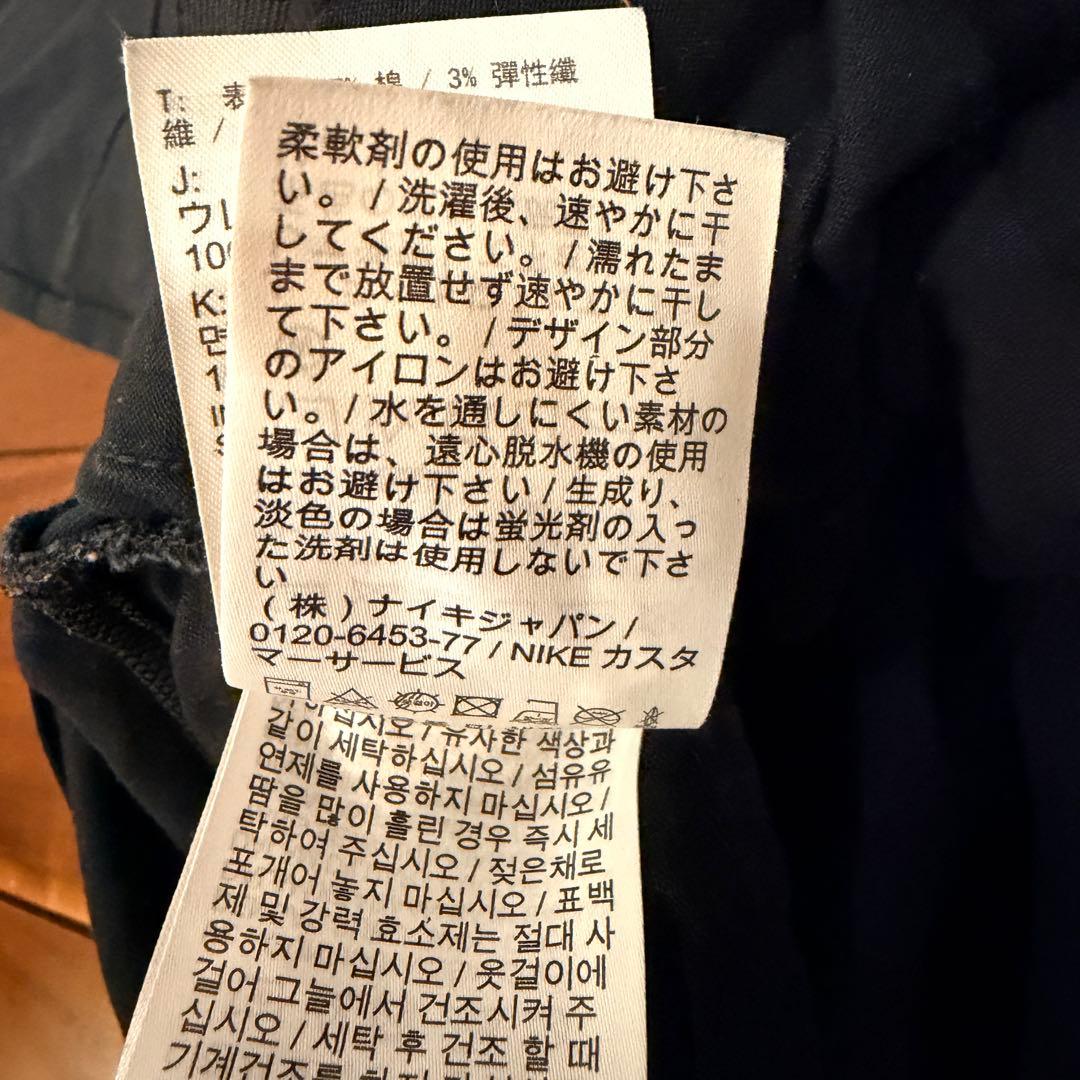 T: 表 棉 / 3% 彈性纖
維 /
J:
ウレ
100
K:
면
柔軟剤の使用はお避け下さ
い。/洗濯後、速やかに干
してください。/濡れたま
まで放置せず速やかに干し
て下さい。/デザイン部分
のアイロンはお避け下さ
い。/水を通しにくい素材の
場合は、遠心脱水機の使用
はお避け下さい/生成り、
淡色の場合は蛍光剤の入っ
た洗剤は使用しないで下さ
い
(株)ナイキジャパン/
0120-6453-77/NIKE カスタ
マーサービス
십시오/유사한 색상과
같이 세탁하십시오/섬유유
연제를 사용하지 마십시오/
땀을 많이 흘린 경우 즉시 세
탁하여 주십시오/젖은채로
포개어 놓지 마십시오/표백
제 및 강력 효소제는 절대 사
용하지 마십시오/옷걸이에
걸어 그늘에서 건조시켜 주
십시오/세탁 후 건조 할 때
기계건조를